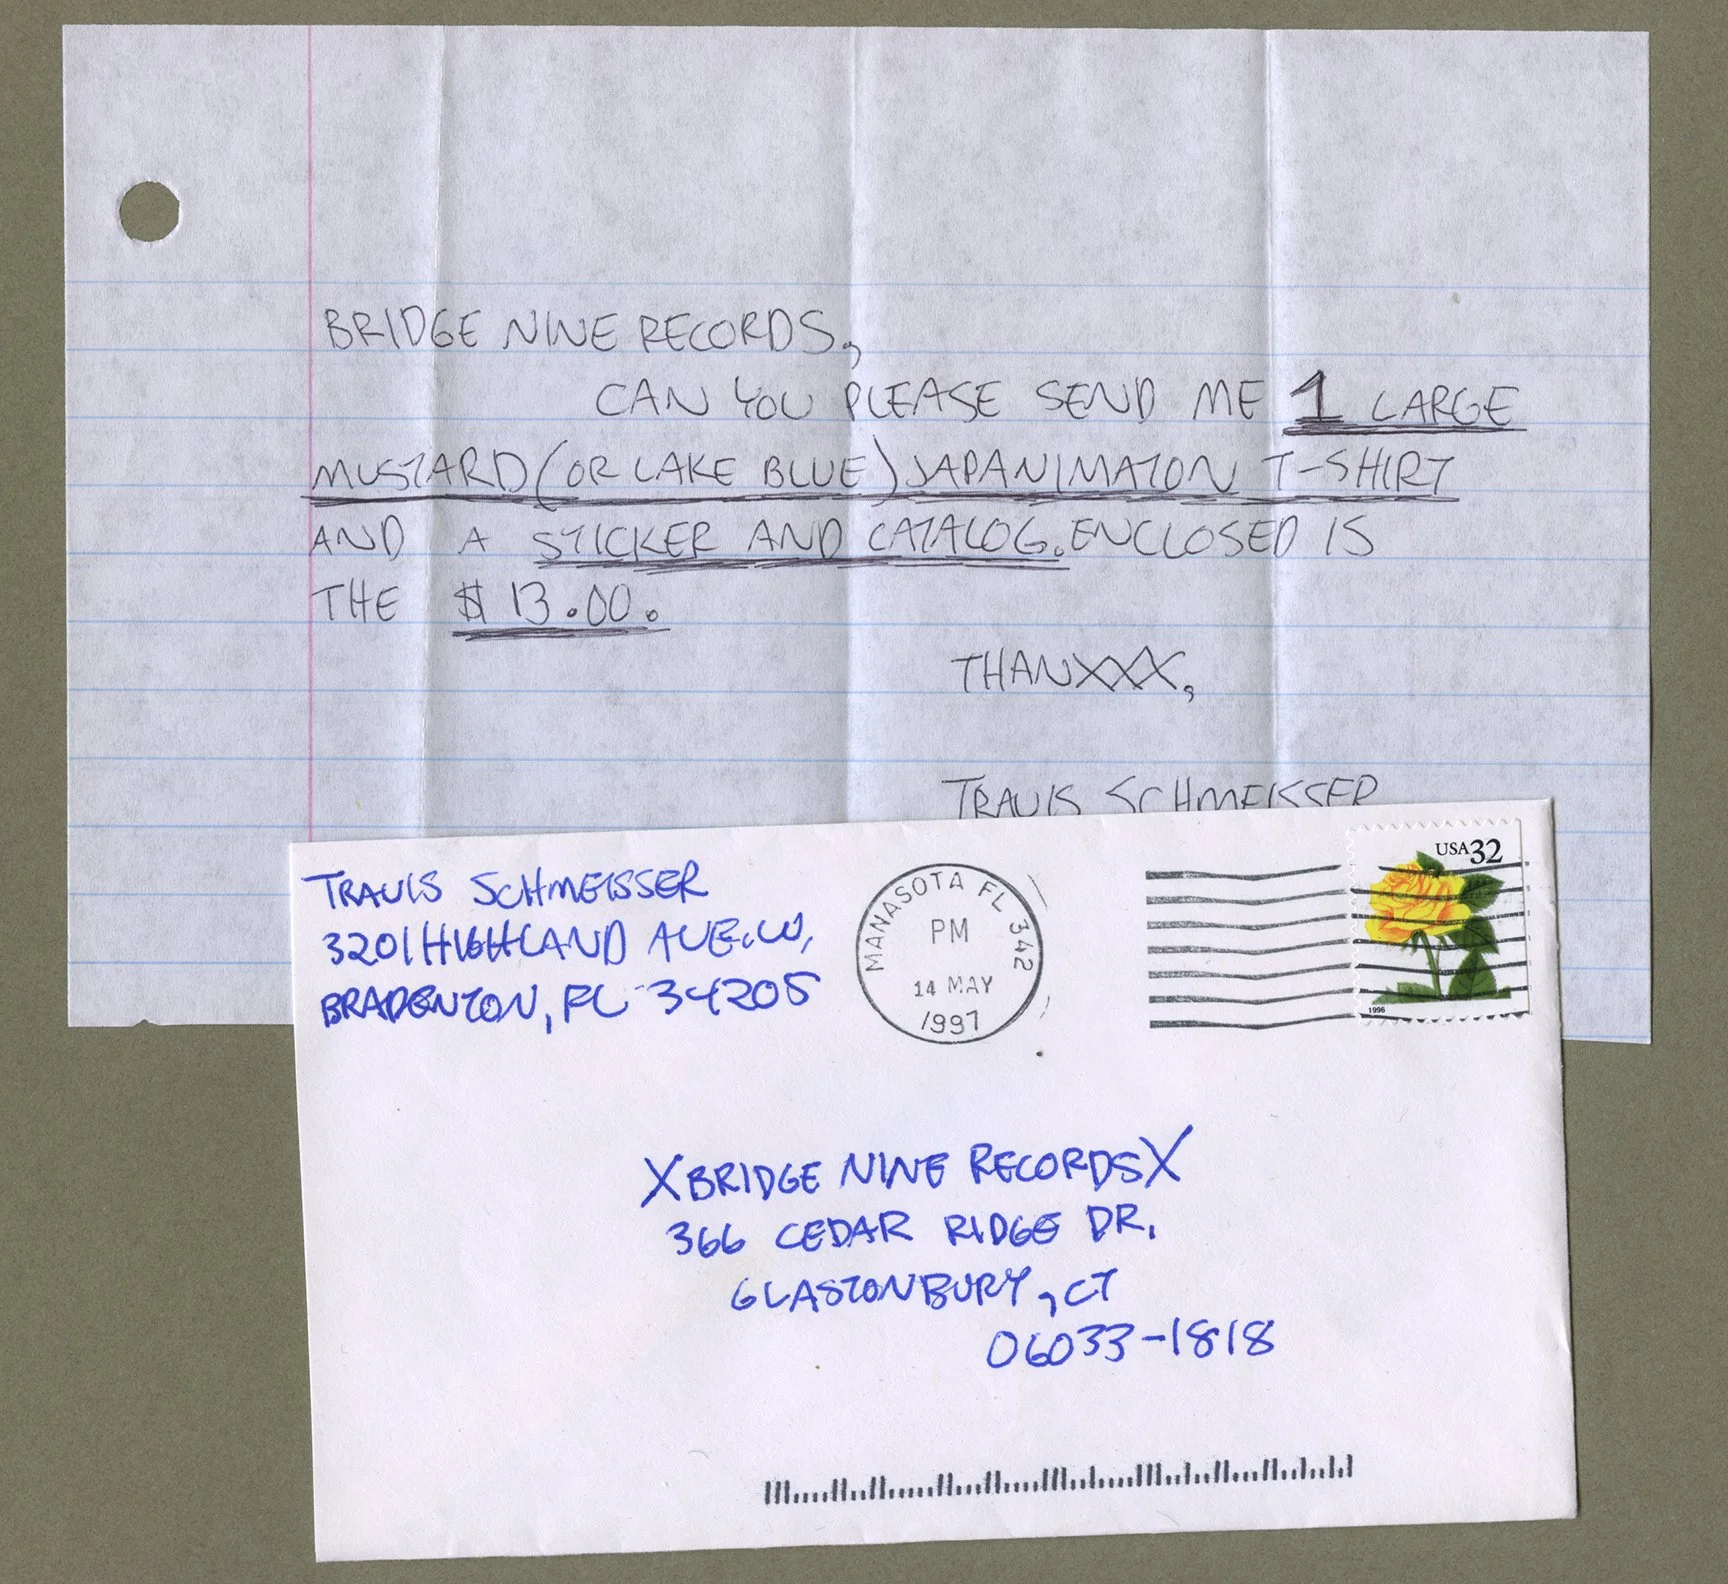 BRIDGE NINE RECORDS,
CAN YOU PLEASE SEND ME 1 LARGE
MUSTARD (OR LAKE BLUE) JAPANIMATON T-SHIRT
AND A STICKER AND CATALOG. ENCLOSED IS
THE $13.00.
THANXXX,
TRAVIS SCHMEISSER
TRAVIS SCHMEISSER
3201 HIGHLAND AVE. W,
BRADENTON, FL 34205
MANASOTA FL 342
PM
14 MAY
1997
USA 32
1996
XBRIDGE NINE RECORDSX
366 CEDAR RIDGE DR.
GLASTONBURY, CT
06033-1818